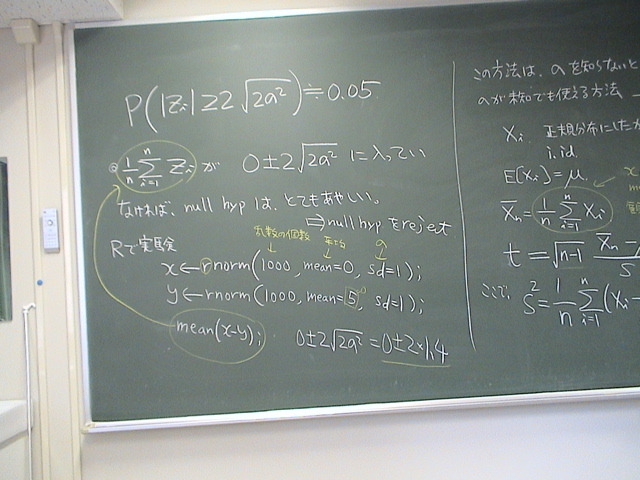 P(|Zi| ≥ 2√2a²) ≒ 0.05
1/n Σ_{i=1}^{n} Zi が 0±2√2a² に入ってい
なければ、null hyp は、とてもあやしい。
⇨ null hyp を reject
Rで実験
乱数の個数 平均 a
x ← rnorm(1000, mean=0, sd=1);
y ← rnorm(1000, mean=5, sd=1);
mean(x-y); 0±2√2a² = 0±2×1.4
この方法は、a を知らないと
a が未知でも使える方法
Xi 正規分布にしたが
i.i.d.
E[Xi] = μ,
X̄n = 1/n Σ_{i=1}^{n} Xi
t = √n-1 X̄n - / S
ここで、 S² = 1/n Σ_{i=1}^{n} (Xi